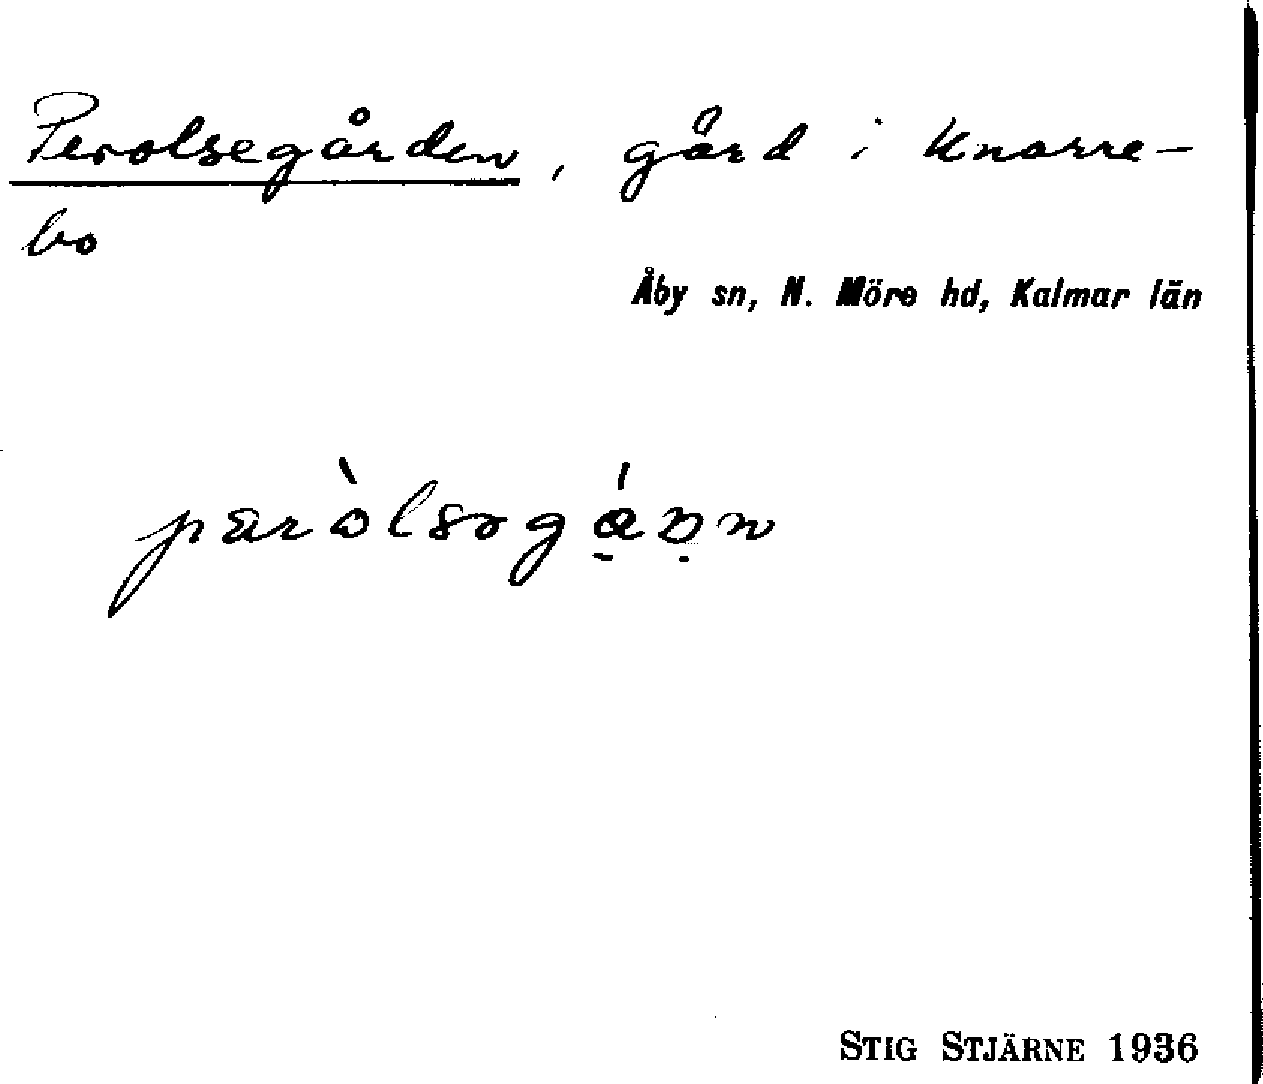 Perolsegården, gård i Knarre-
bo
Åby sn, N. Möre hd, Kalmar län
STIG STJÄRNE 1936